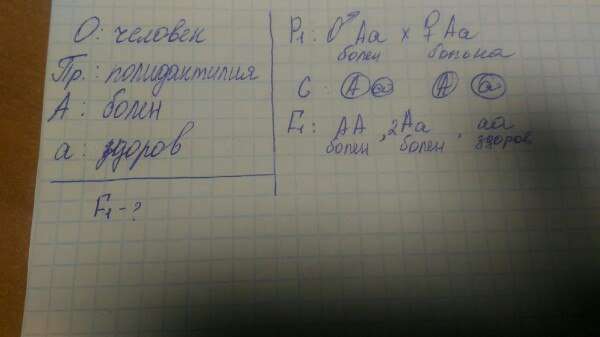 О: человек
Пр.: полидактилия
А: болен
а: здоров
F₁ - ?
P₁: ♂ Аа × ♀ Аа
болен больна
G: А а А а
F₁: АА, 2Аа, аа
болен болен здоров